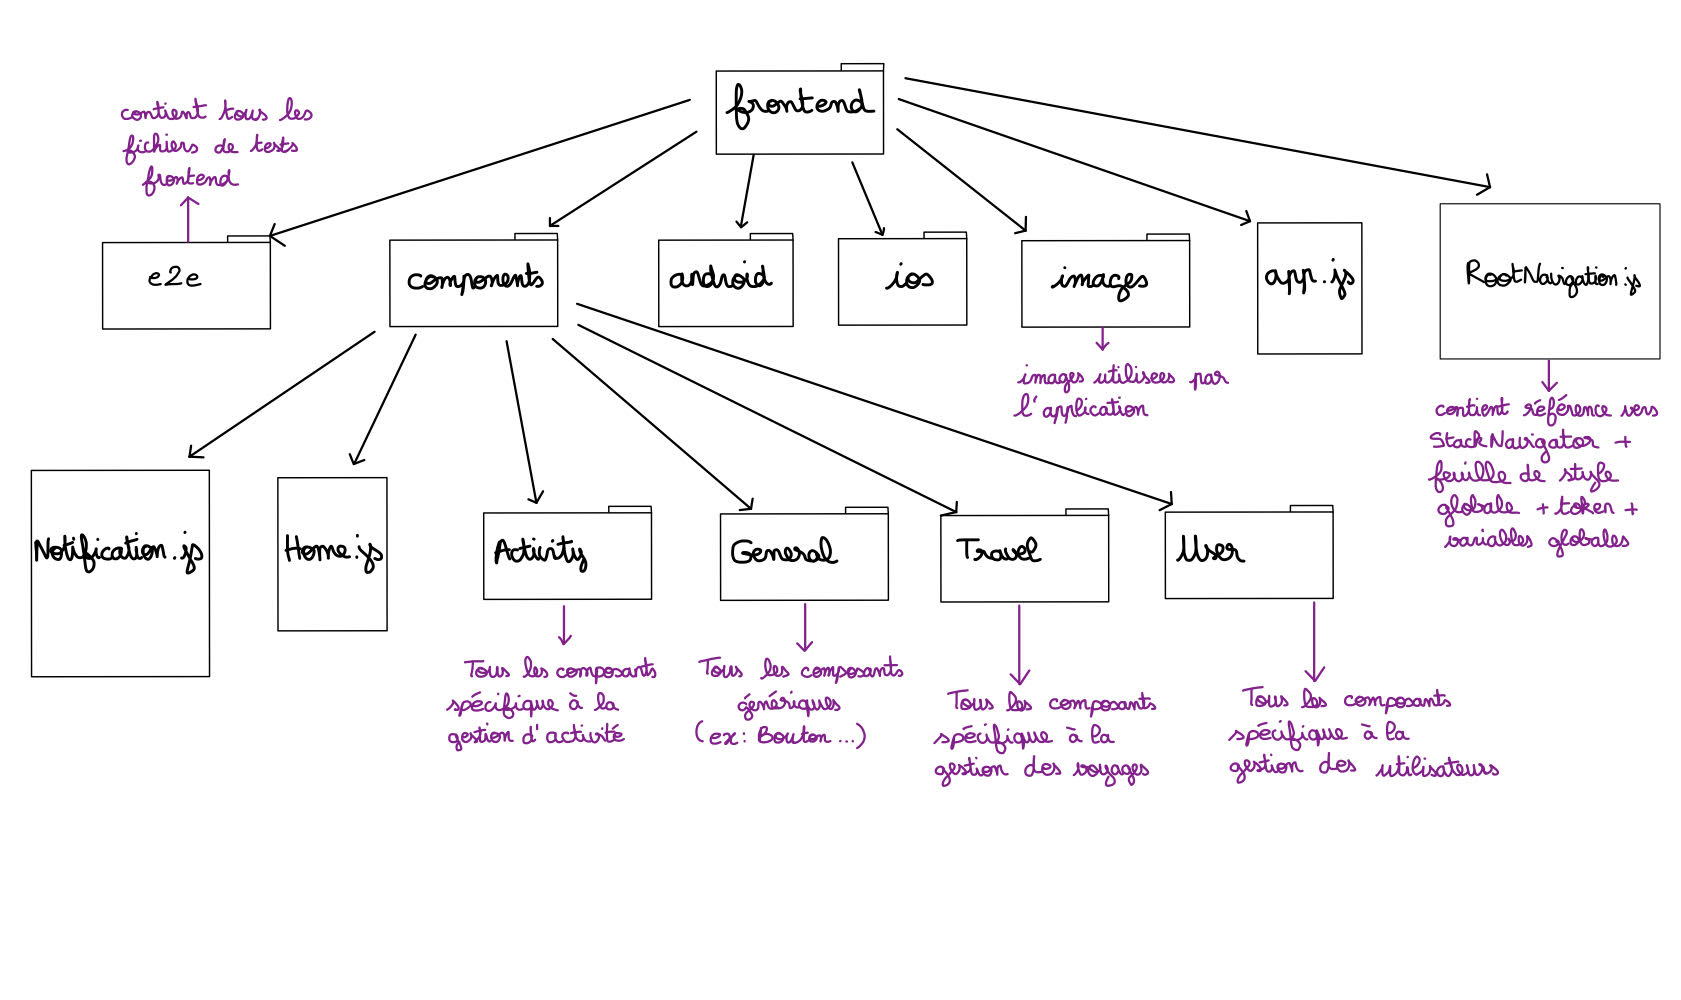 frontend
contient tous les
fichiers de tests
frontend
e2e
components
android
ios
images
app.js
RootNavigation.js
images utilisees par
l'application
contient référence vers
StackNavigator +
feuille de style
globale + token +
variables globales
Notification.js
Home.js
Activity
General
Travel
User
Tous les composant
spécifique à la
gestion d'activité
Tous les composants
génériques
(ex: Bouton ...)
Tous les composants
spécifique à la
gestion des voyages
Tous les composants
spécifique à la
gestion des utilisateurs